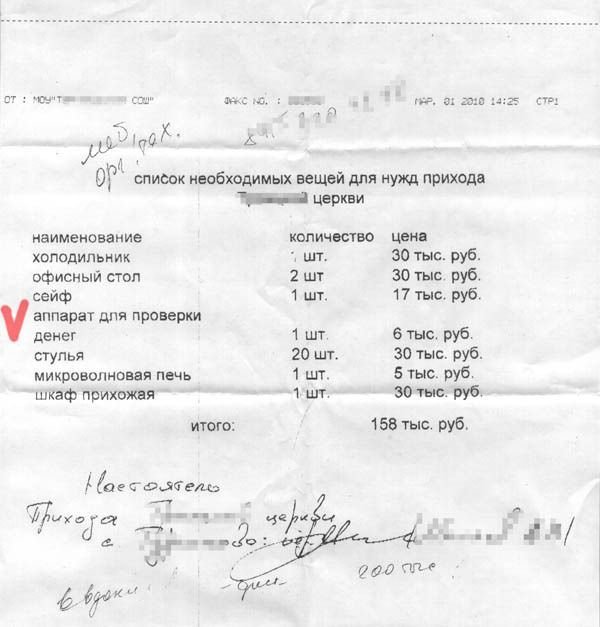 ОТ : МОУ"Т СОШ" ФАКС NO. : МАР. 01 2010 14:25 СТР1
меб.
орг.тех.
список необходимых вещей для нужд прихода
церкви
наименование количество цена
холодильник 1 шт. 30 тыс. руб.
офисный стол 2 шт 30 тыс. руб.
сейф 1 шт. 17 тыс. руб.
аппарат для проверки
денег 1 шт. 6 тыс. руб.
стулья 20 шт. 30 тыс. руб.
микроволновая печь 1 шт. 5 тыс. руб.
шкаф прихожая 1 шт. 30 тыс. руб.
итого: 158 тыс. руб.
Настоятель
Прихода церкви
с
200 тыс.